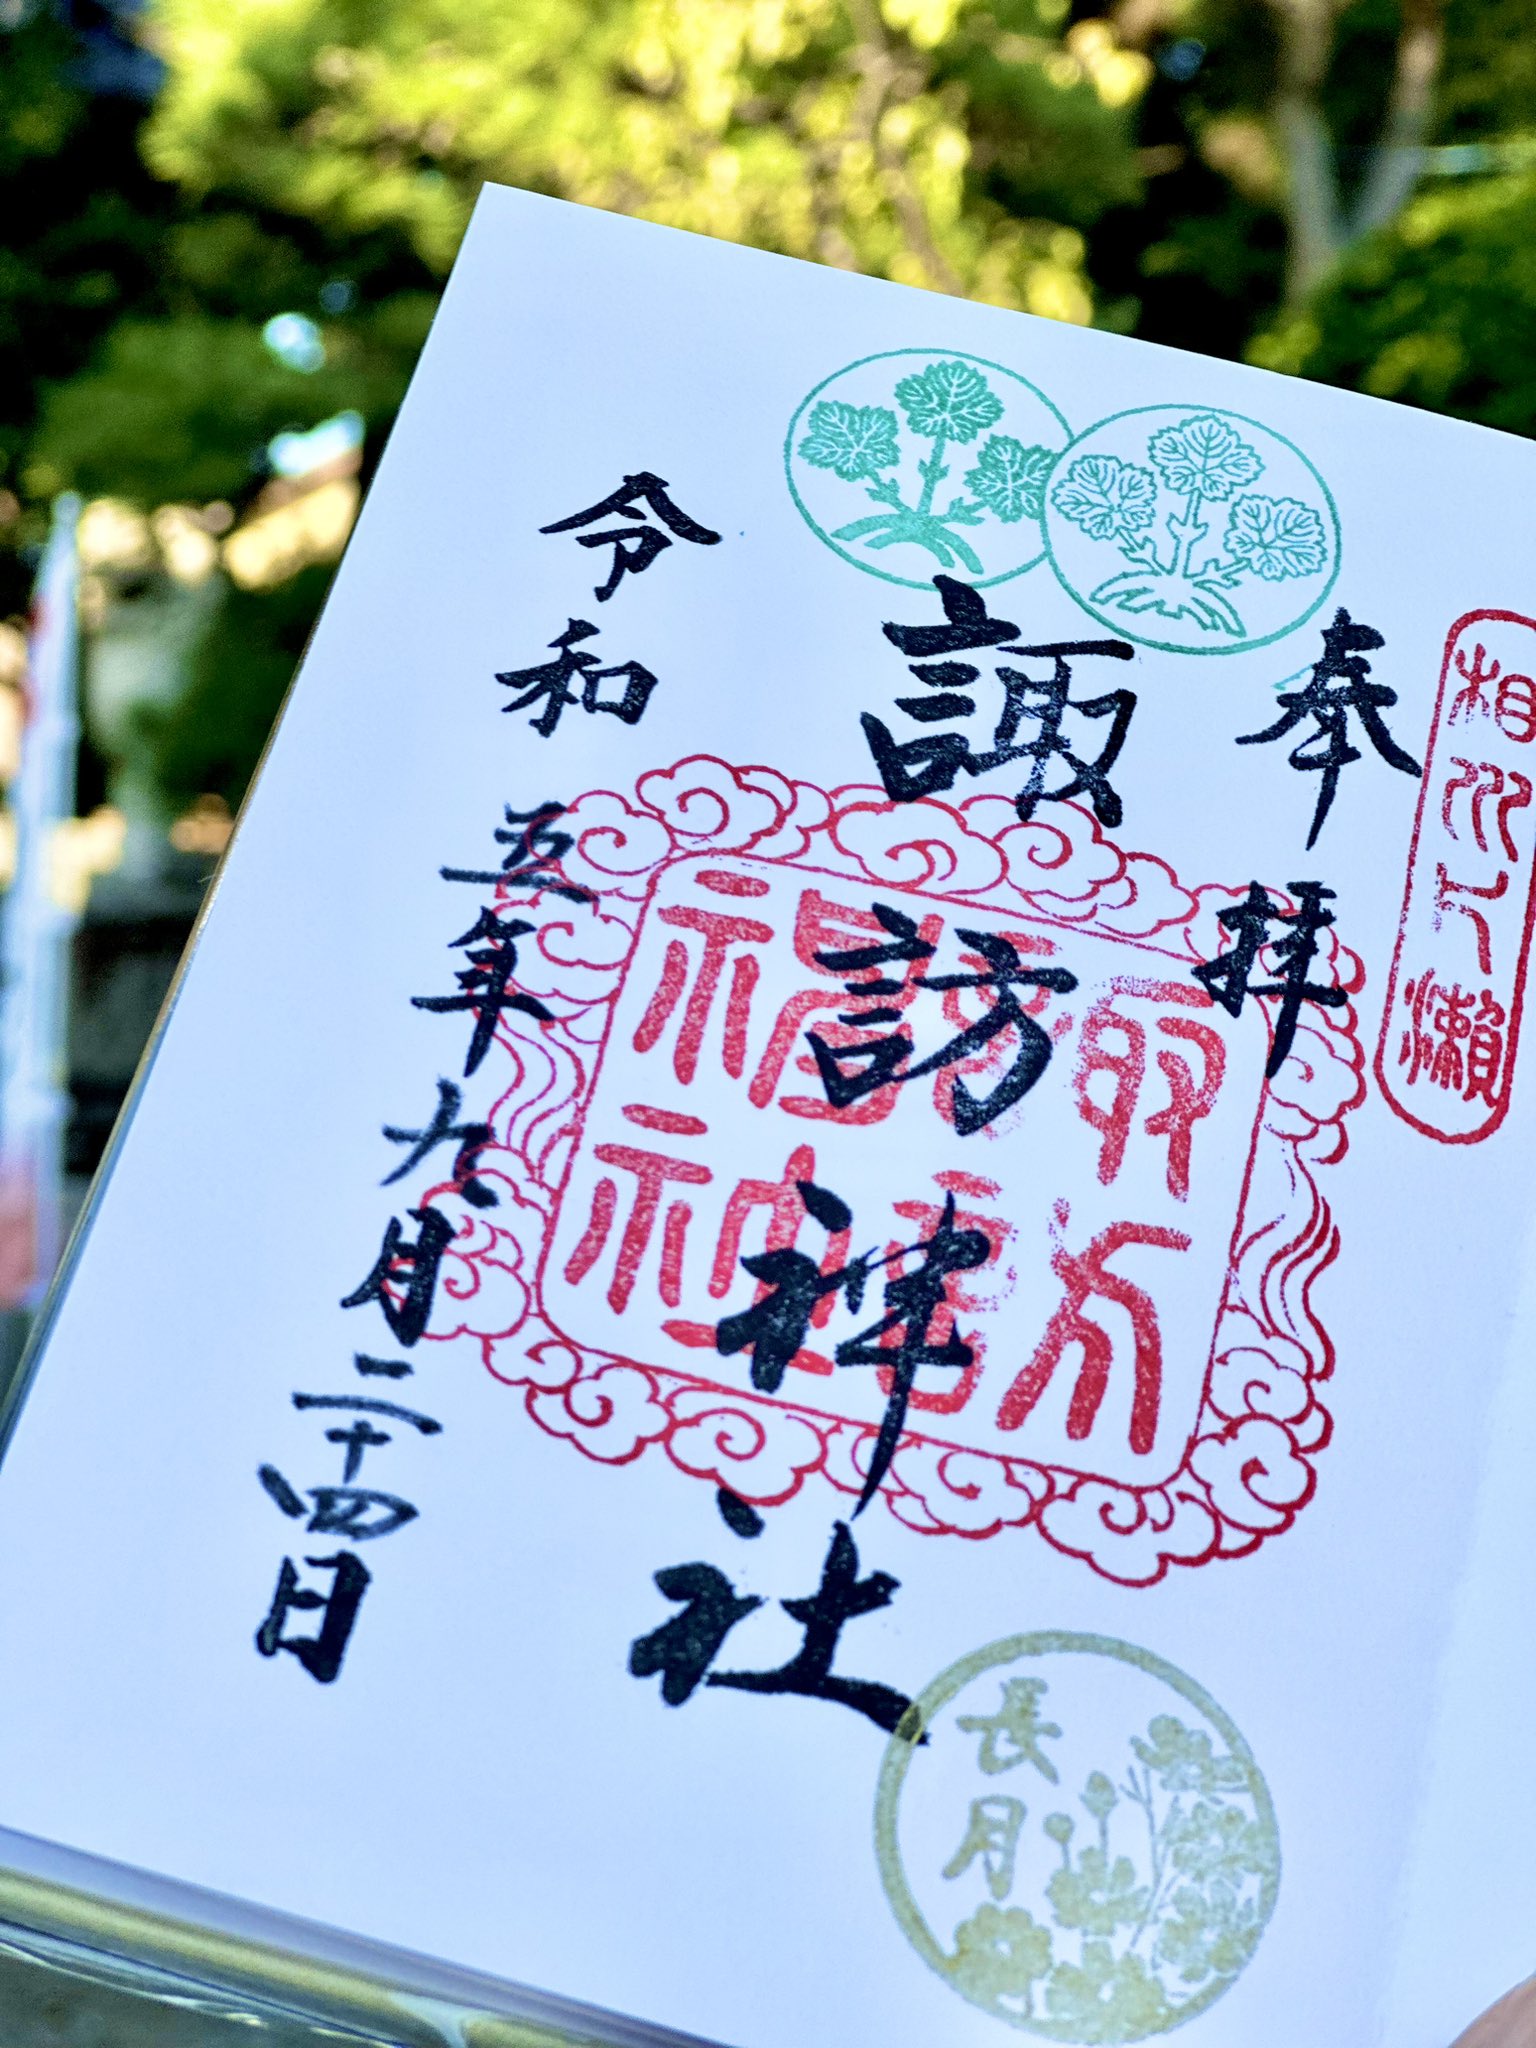 相州片瀬
奉拝
諏訪神社
令和五年九月二十四日
長月